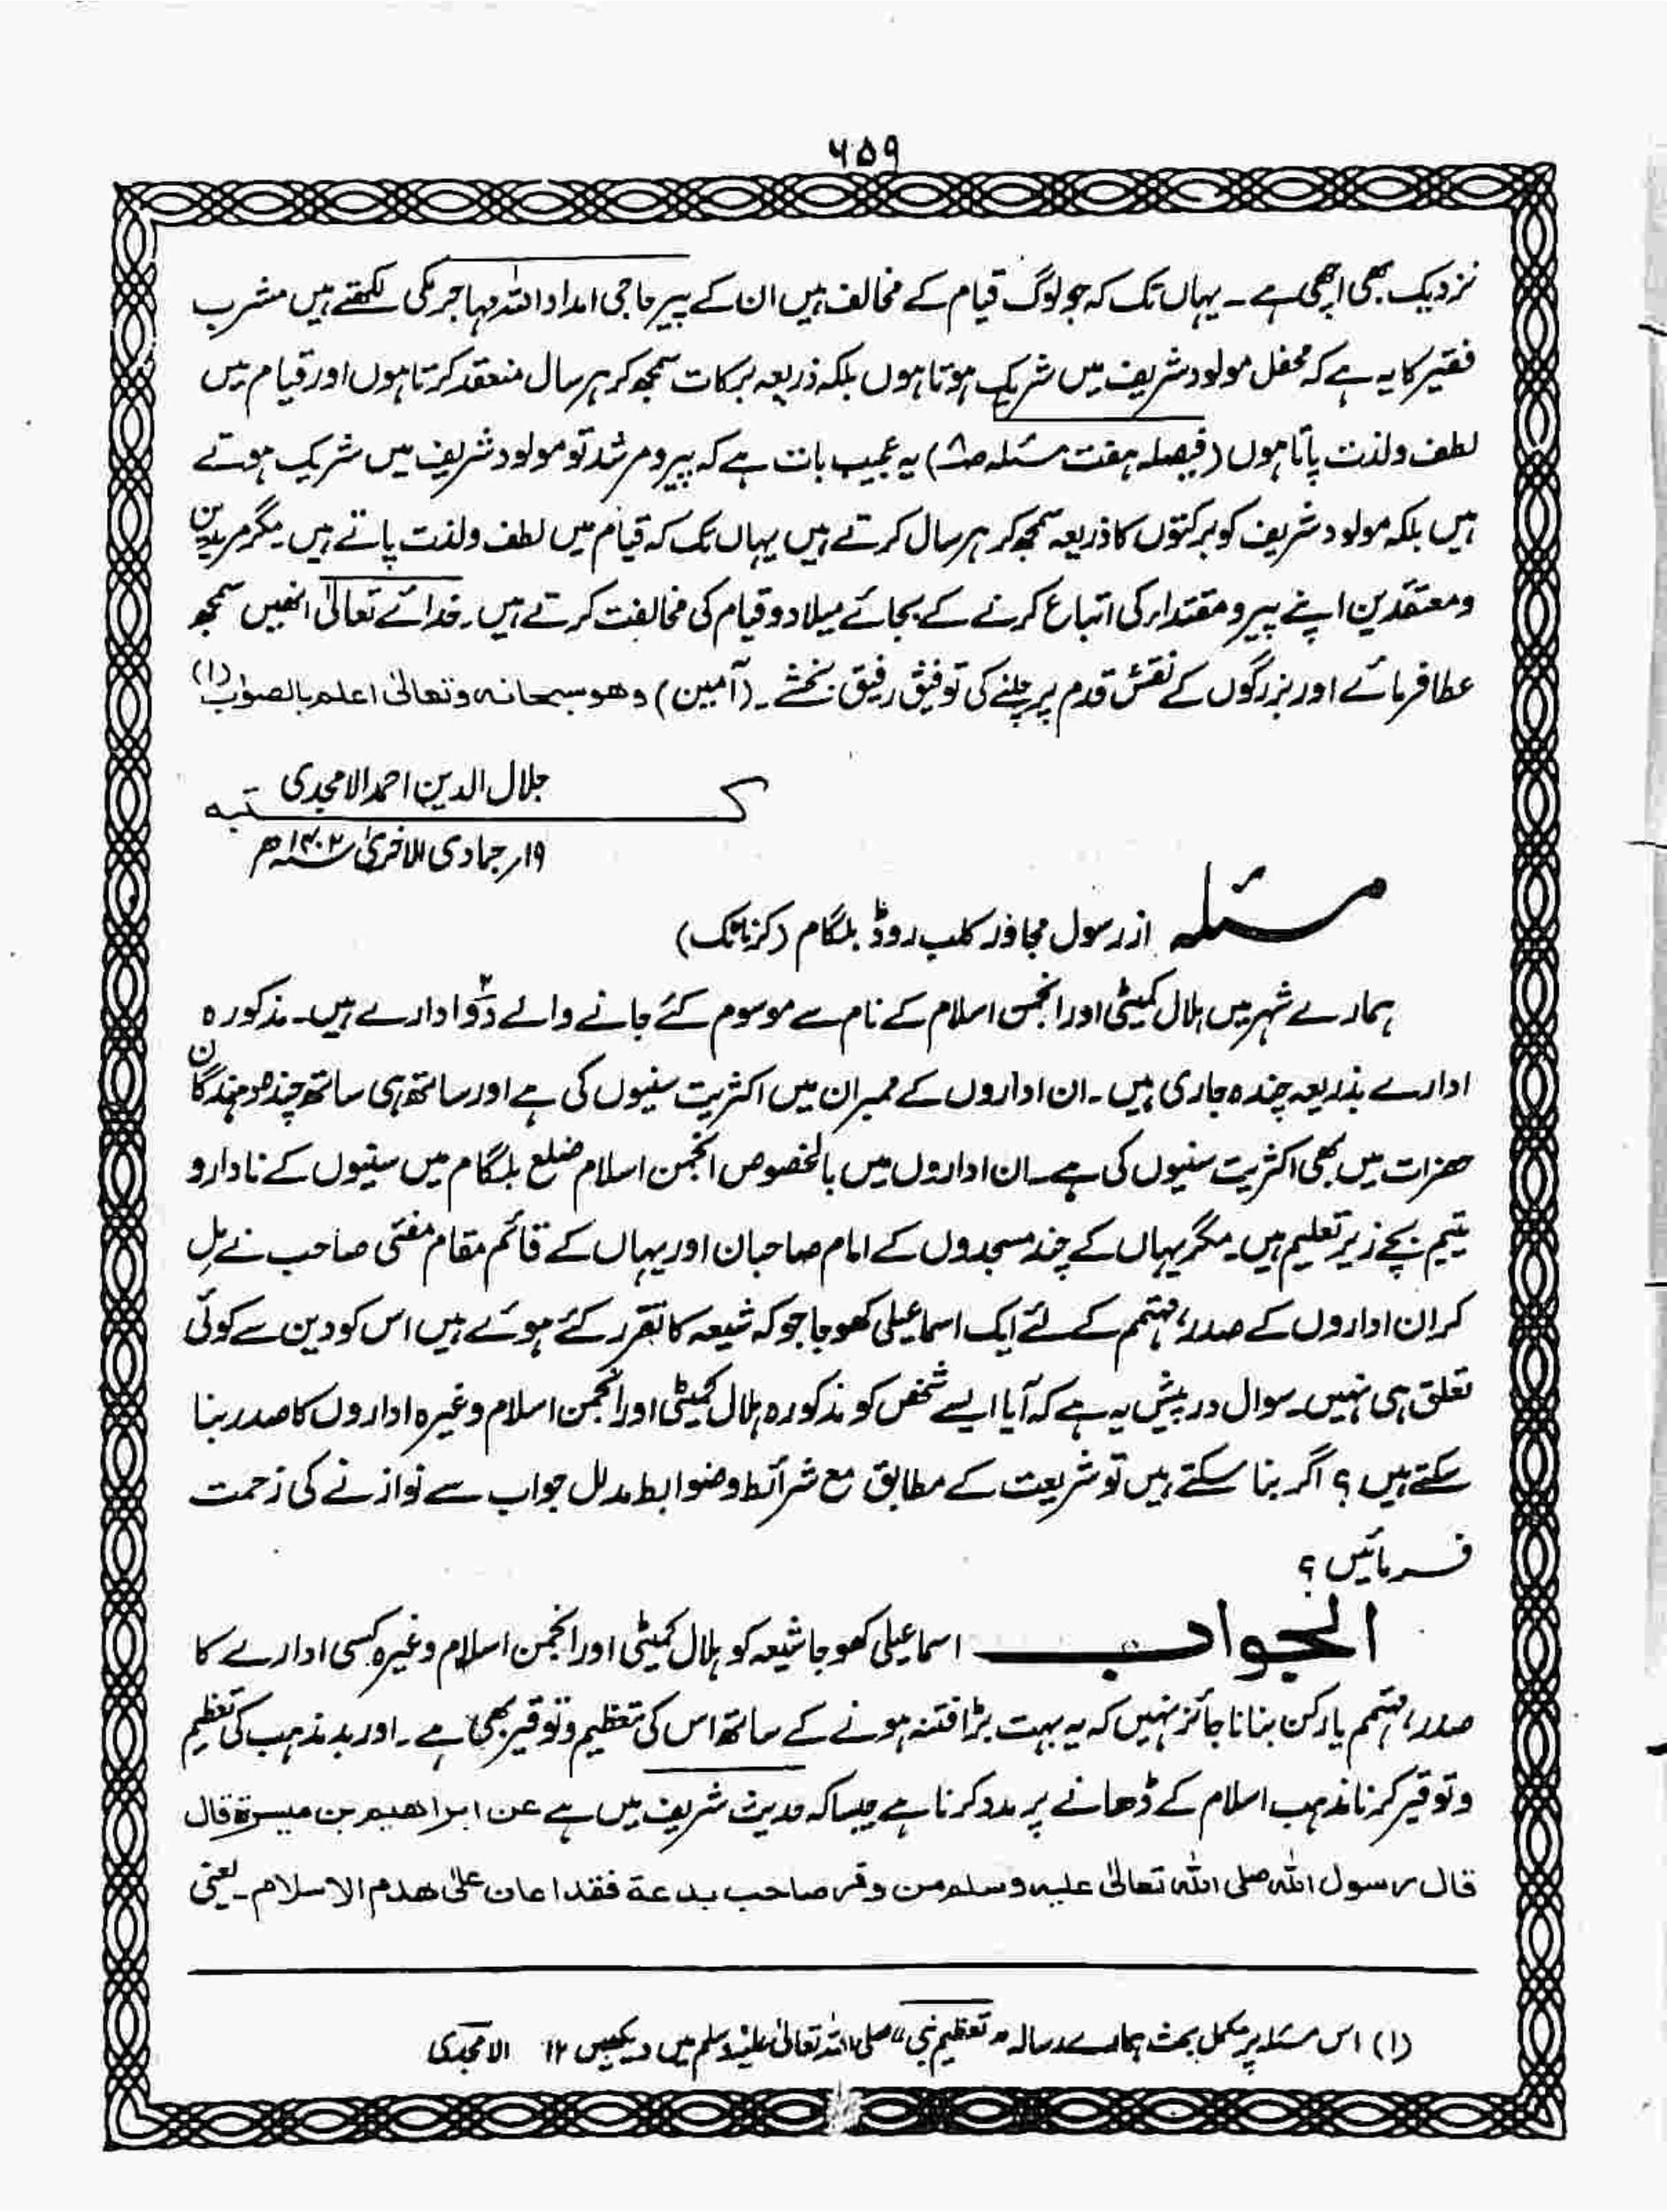 ۶۵۹
نزدیک بھی اچھی ہے۔ یہاں تک کہ جو لوگ قیام کے مخالف ہیں ان کے پیر حاجی امداد اللہ مہاجر مکی لکھتے ہیں مشرب
فقیر کا یہ ہے کہ محفل مولود شریف میں شریک ہوتا ہوں بلکہ ذریعہ برکات سمجھ کر ہر سال منعقد کرتا ہوں اور قیام میں
لطف ولذت پاتا ہوں (فیصلہ ہفت مسئلہ ص۸) یہ عجیب بات ہے کہ پیر و مرشد تو مولود شریف میں شریک ہوتے
ہیں بلکہ مولود شریف کو برکتوں کا ذریعہ سمجھ کر ہر سال کرتے ہیں یہاں تک کہ قیام میں لطف ولذت پاتے ہیں مگر مریدین
ومعتقدین اپنے پیر و مقتدار کی اتباع کرنے کے بجائے میلاد و قیام کی مخالفت کرتے ہیں۔ خدائے تعالیٰ انھیں سمجھ
عطا فرمائے اور بزرگوں کے نقش قدم پر چلنے کی توفیق رفیق بخشے۔ (آمین) وھو سبحانہ وتعالیٰ اعلم بالصواب (۱)
جلال الدین احمد الامجدی
کتبہ
۱۹؍ جمادی الاخریٰ ۱۴۰۲ھ
مسئلہ از رسول مجاور کلب روڈ بلگام (کرناٹک)
ہمارے شہر میں ہلال کمیٹی اور انجمن اسلام کے نام سے موسوم کئے جانے والے دو۲ ادارے ہیں۔ مذکورہ
ادارے بذریعہ چندہ جاری ہیں۔ ان اداروں کے ممبران میں اکثریت سنیوں کی ہے اور ساتھ ہی ساتھ چندہ دہندگان
حضرات میں بھی اکثریت سنیوں کی ہے۔ ان اداروں میں بالخصوص انجمن اسلام ضلع بلگام میں سنیوں کے نادار و
یتیم بچے زیر تعلیم ہیں۔ مگر یہاں کے چند مسجدوں کے امام صاحبان اور یہاں کے قائم مقام مفتی صاحب نے مِل
کر ان اداروں کے صدر، مہتمم کے لئے ایک اسماعیلی کھوجا جو کہ شیعہ کا تقرر کئے ہوئے ہیں اس کو دین سے کوئی
تعلق ہی نہیں۔ سوال در پیش یہ ہے کہ آیا ایسے شخص کو مذکورہ ہلال کمیٹی اور انجمن اسلام وغیرہ اداروں کا صدر بنا
سکتے ہیں؟ اگر بنا سکتے ہیں تو شریعت کے مطابق مع شرائط وضوابط مدلل جواب سے نوازنے کی زحمت
فرمائیں؟
الجواب اسماعیلی کھوجا شیعہ کو ہلال کمیٹی اور انجمن اسلام وغیرہ کسی ادارے کا
صدر، مہتمم یا رکن بنانا جائز نہیں کہ یہ بہت بڑا فتنہ ہونے کے ساتھ اس کی تعظیم و توقیر بھی ہے۔ اور بد مذہب کی تعظیم
و توقیر کرنا مذہب اسلام کے ڈھانے پر مدد کرنا ہے جیسا کہ حدیث شریف میں ہے عن ابراھیم بن میسرۃ قال
قال رسول اللہ صلی اللہ تعالیٰ علیہ وسلم من وقر صاحب بدعۃ فقد اعان علیٰ ھدم الاسلام۔ یعنی
(۱) اس مسئلہ پر مکمل بحث ہمارے رسالہ "تعظیم نبی" صلی اللہ تعالیٰ علیہ وسلم میں دیکھیں ۱۲ الامجدی